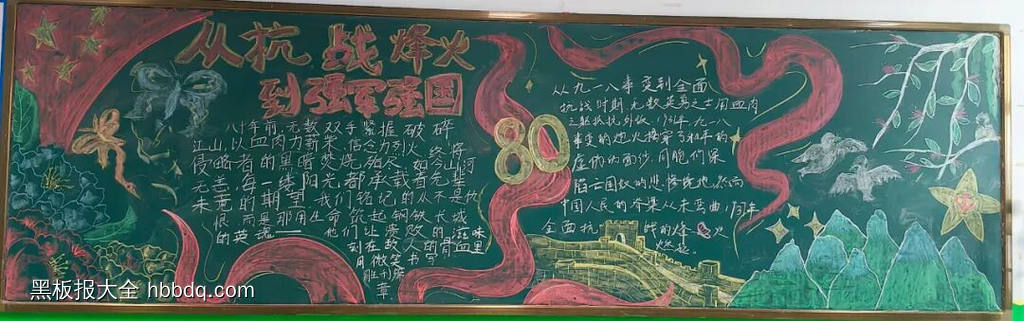 从抗战烽火
到强军强国
八十年前,无数双手紧握破碎
江山,以血肉为薪柴,信念为烈火,终将
侵略者的黑暗焚烧殆尽,如今山河
无恙,每一缕阳光,都承载着先辈
未竟的期望,我们铭记的从不是仇
恨,而是那用生命筑起钢铁长城
的英魂——他们让溃败的滋味
刻在敌人的骨血里
用微笑书写
胜利
章
80
从九一八事变到全面
抗战时期,无数英勇之士用血肉
之躯抵抗外敌,1931年九一八
事变的炮火
同胞们深
陷亡国奴的悲惨境地,然而
中国人民的脊梁从未弯曲,1937年
全面抗战的烽火
燃起
黑板报大全 hbbdq.com